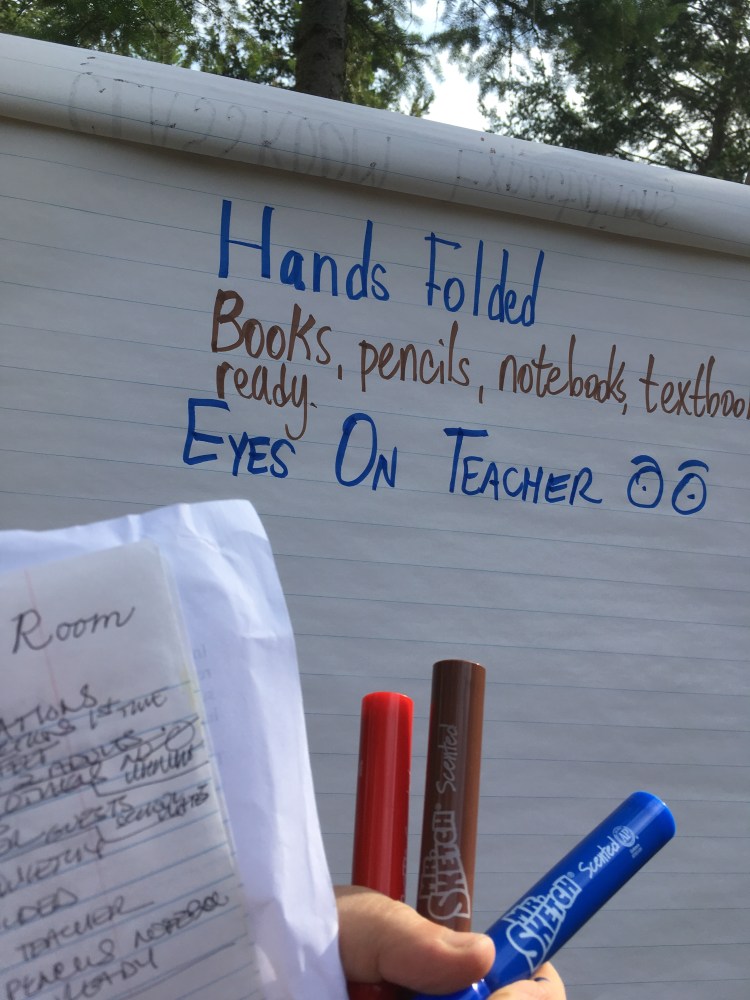 CLASSROOM EXPECTATIONS
Hands Folded
Books, pencils, notebooks, textboo
ready.
EYES ON TEACHER
Room
ATIONS
1st TIME
GUESTS
QUIETLY
LDED
TEACHER
PENCILS NOTEBOOK
READY
MR. SKETCH® Scented
MR. SKETCH® Scented AP